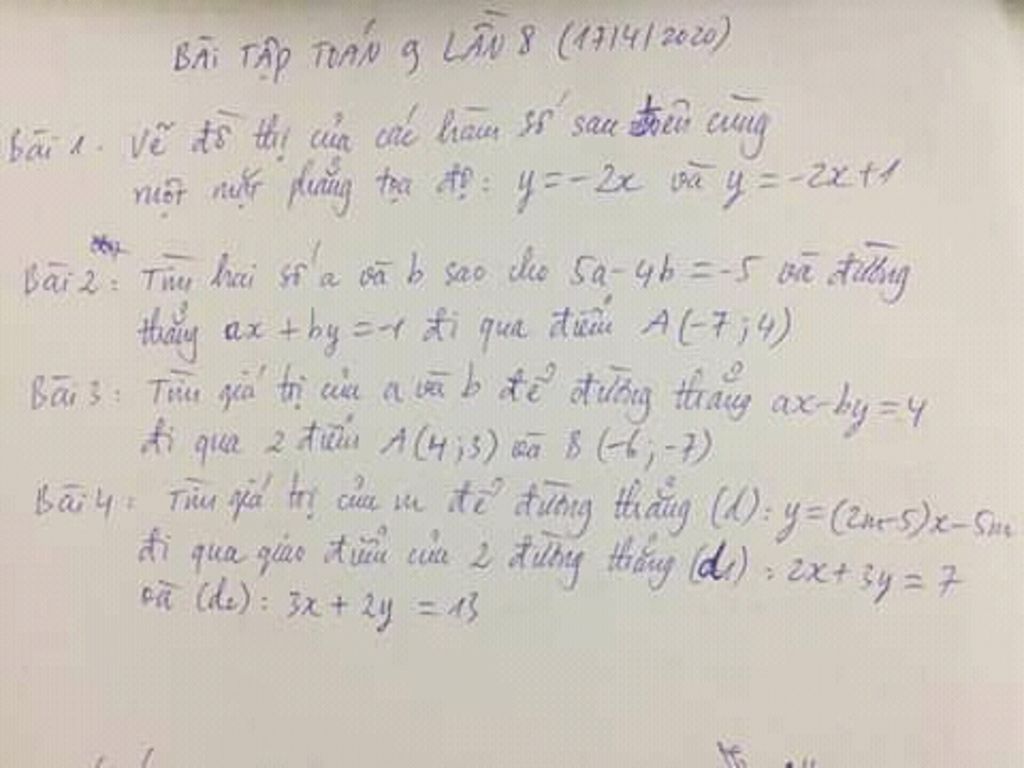 BÀI TẬP TOÁN 9 LẦN 8 (17/4/2020)
Bài 1. Vẽ đồ thị của các hàm số sau trên cùng
một mặt phẳng tọa độ: y = -2x và y = -2x+1
Bài 2: Tìm hai số a và b sao cho 5a - 4b = -5 và đường
thẳng ax + by = -1 đi qua điểm A(-7;4)
Bài 3: Tìm giá trị của a và b để đường thẳng ax - by = 4
đi qua 2 điểm A(4;3) và B(-6;-7)
Bài 4: Tìm giá trị của m để đường thẳng (d): y = (2m-5)x - 5m
đi qua giao điểm của 2 đường thẳng (d1): 2x + 3y = 7
và (d2): 3x + 2y = 13